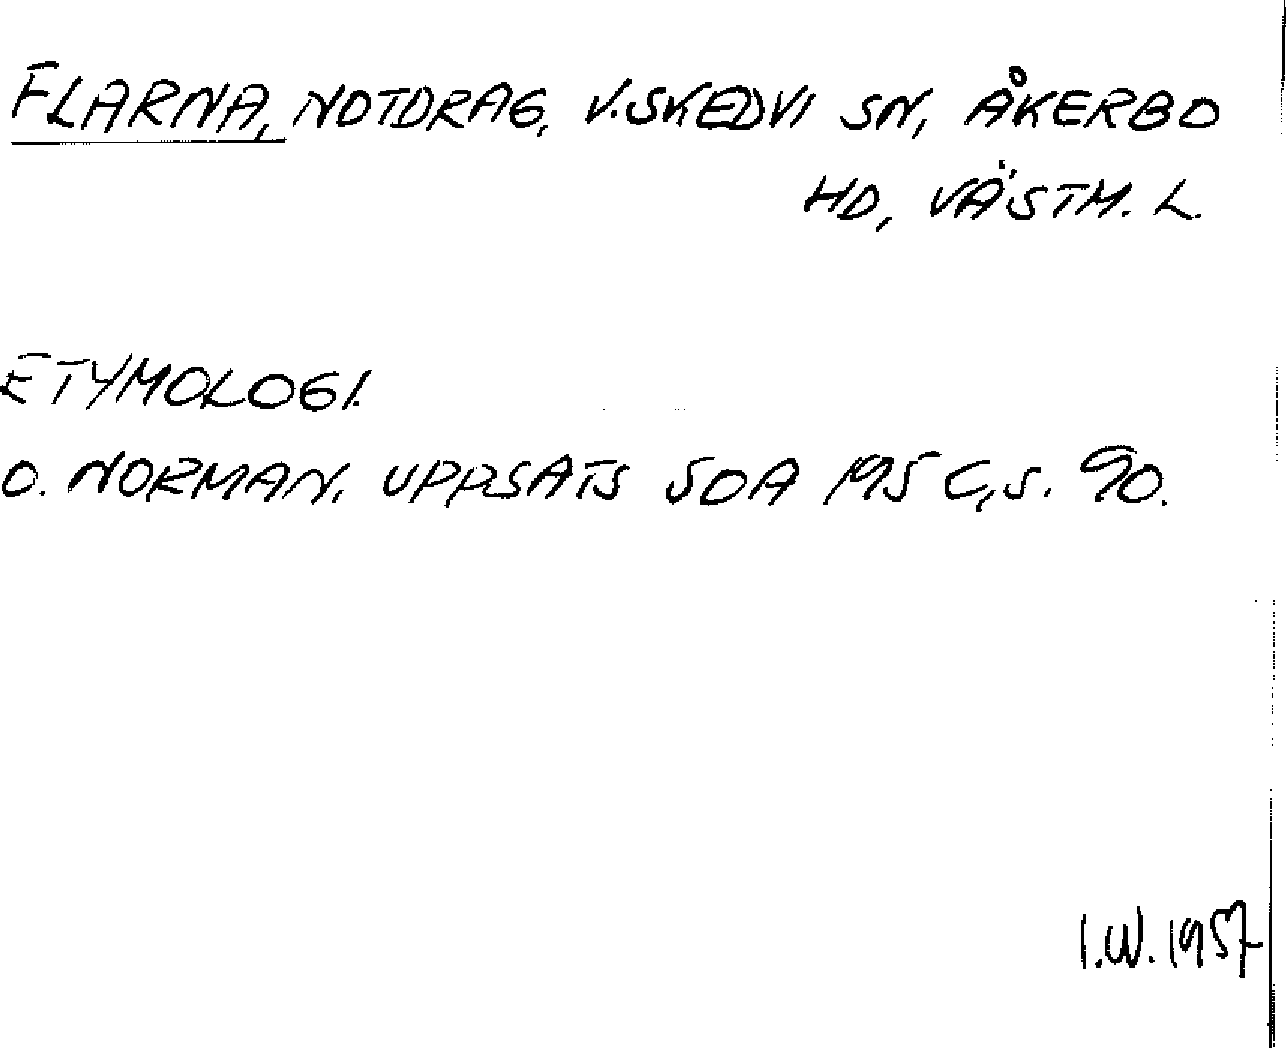 FLARNA, NOTDRAG, V. SKEDVI SN, ÅKERBO
HD, VÄSTM. L.
ETYMOLOGI.
O. NORMAN. UPPSATS SOA 195 C, S. 90.
I.W. 1957